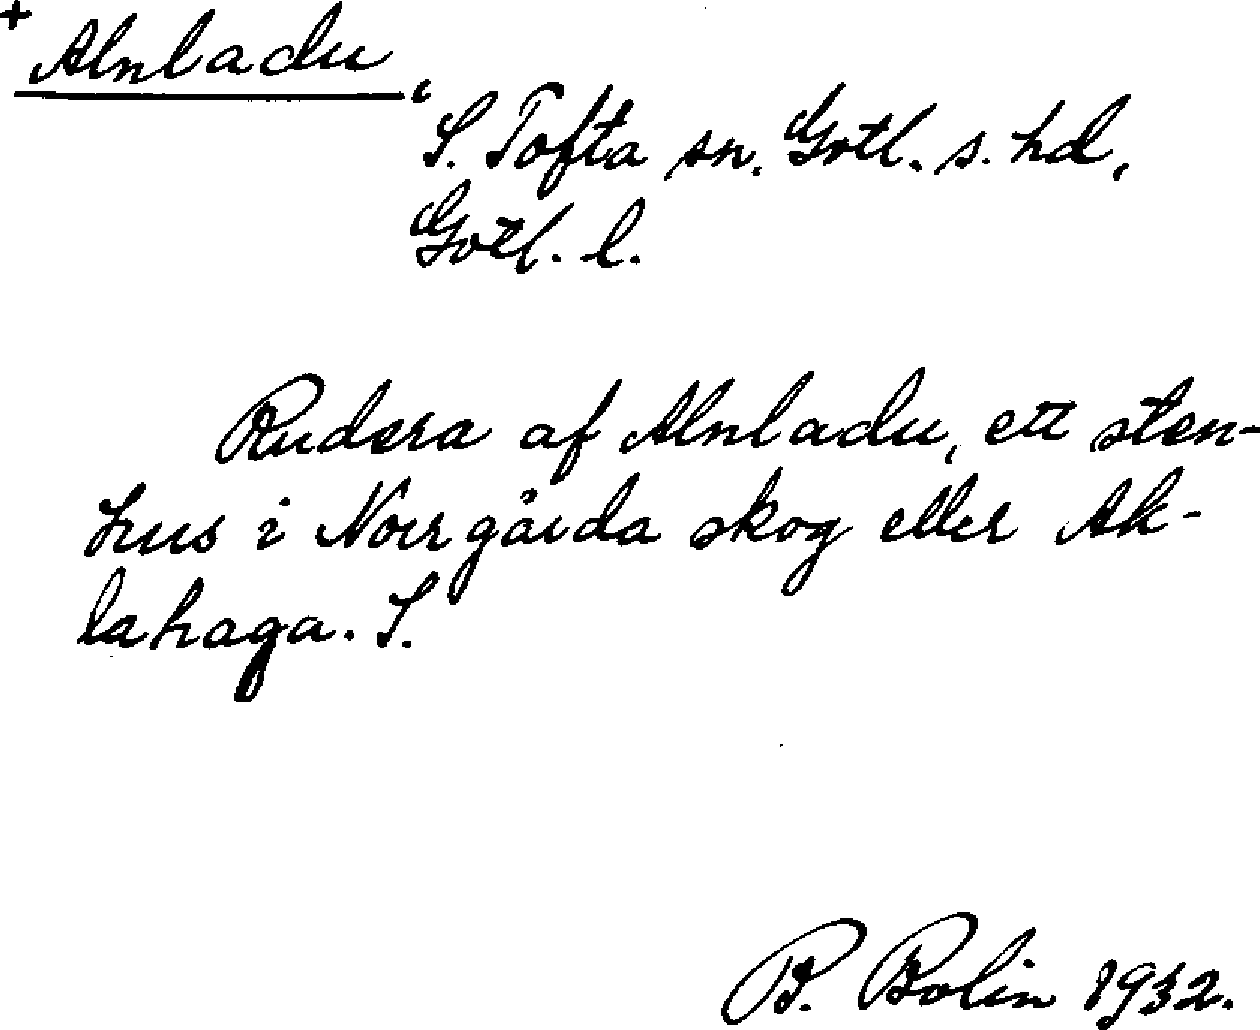 + Alnladu,
S. Tofta sn. Gotl. s. hd,
Gotl. l.
Rudera af Alnladu, ett sten-
hus i Norrgårda skog eller Ah-
lahaga. S.
B. Bolin 1932.